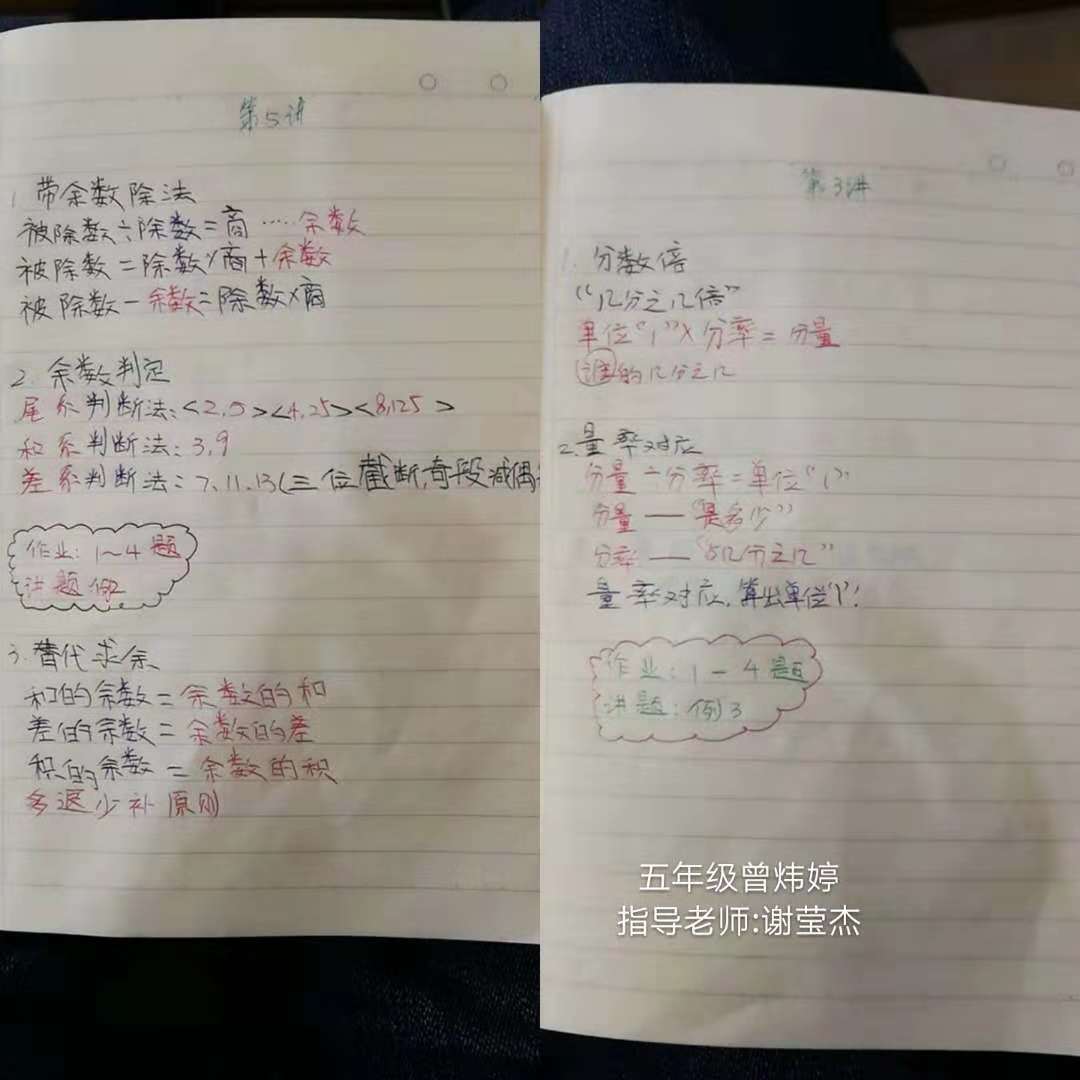 第5讲
1. 带余数除法
被除数÷除数=商……余数
被除数=除数×商+余数
被除数-余数=除数×商
2. 余数判定
尾系判断法:<2,5><4,25><8,125>
和系判断法:3,9
差系判断法:7,11,13(三位截断,奇段减偶
作业:1~4题
讲题:例2
3.替代求余
和的余数=余数的和
差的余数=余数的差
积的余数=余数的积
多退少补原则
第3讲
1. 分数倍
“几分之几倍”
单位“1”×分率=分量
的几分之几
2.量率对应
分量÷分率=单位“1”
分量—“是多少”
分率—“占几分之几”
量率对应,算出单位“1”!
作业:1-4题
讲题:例3
五年级曾炜婷
指导老师:谢莹杰